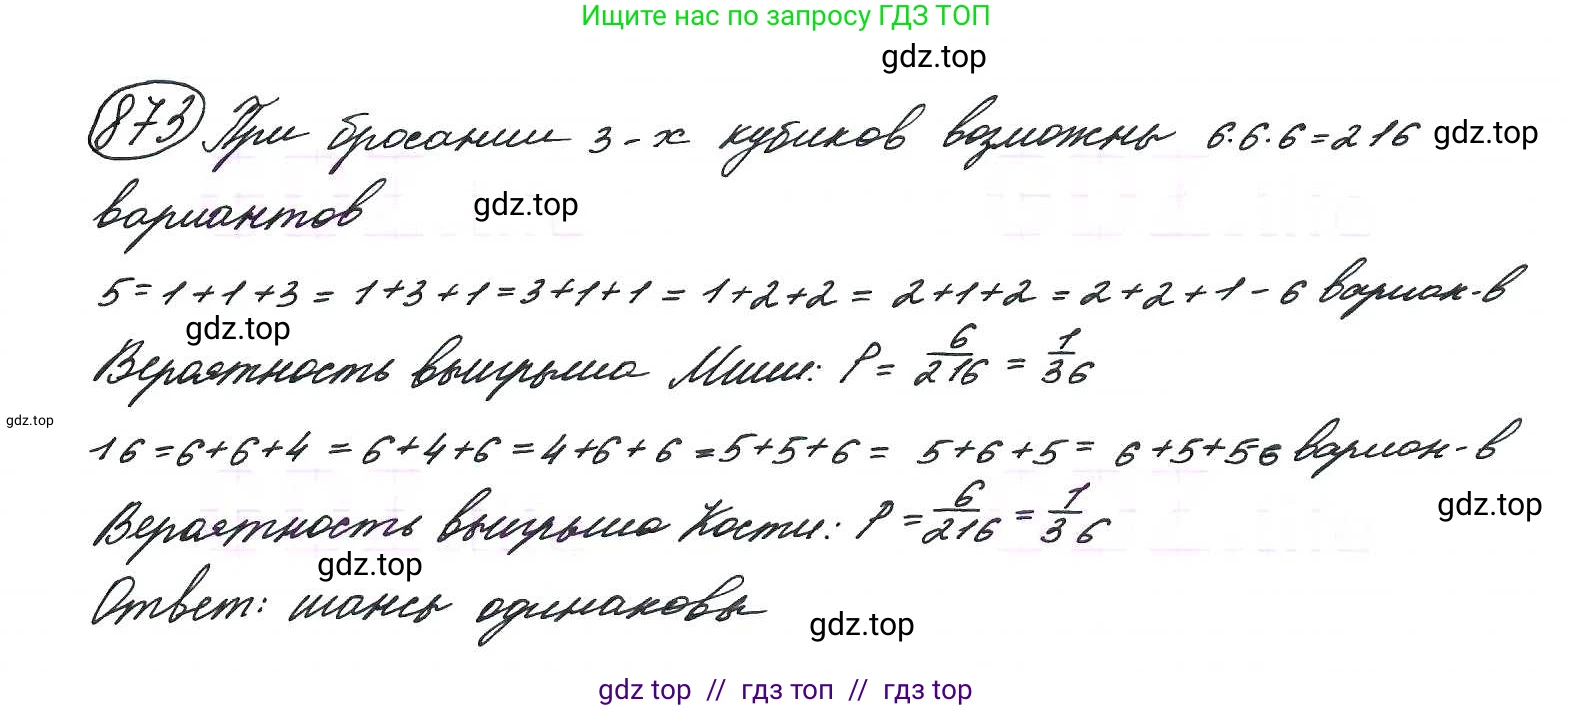 Ищите нас по запросу ГДЗ ТОП
gdz.top
873 При бросании 3-х кубиков возможны 6·6·6=216 gdz.top
вариантов gdz.top
5=1+1+3=1+3+1=3+1+1=1+2+2=2+1+2=2+2+1-6 вариан-в
gdz.top
Вероятность выигрыша Миши: P = 6/216 = 1/36
gdz.top
16=6+6+4=6+4+6=4+6+6=5+5+6=5+6+5=6+5+5 6 вариан-в
gdz.top
Вероятность выигрыша Кости: P = 6/216 = 1/36
gdz.top
Ответ: шансы одинаковы
gdz.top
gdz top // гдз топ // гдз top